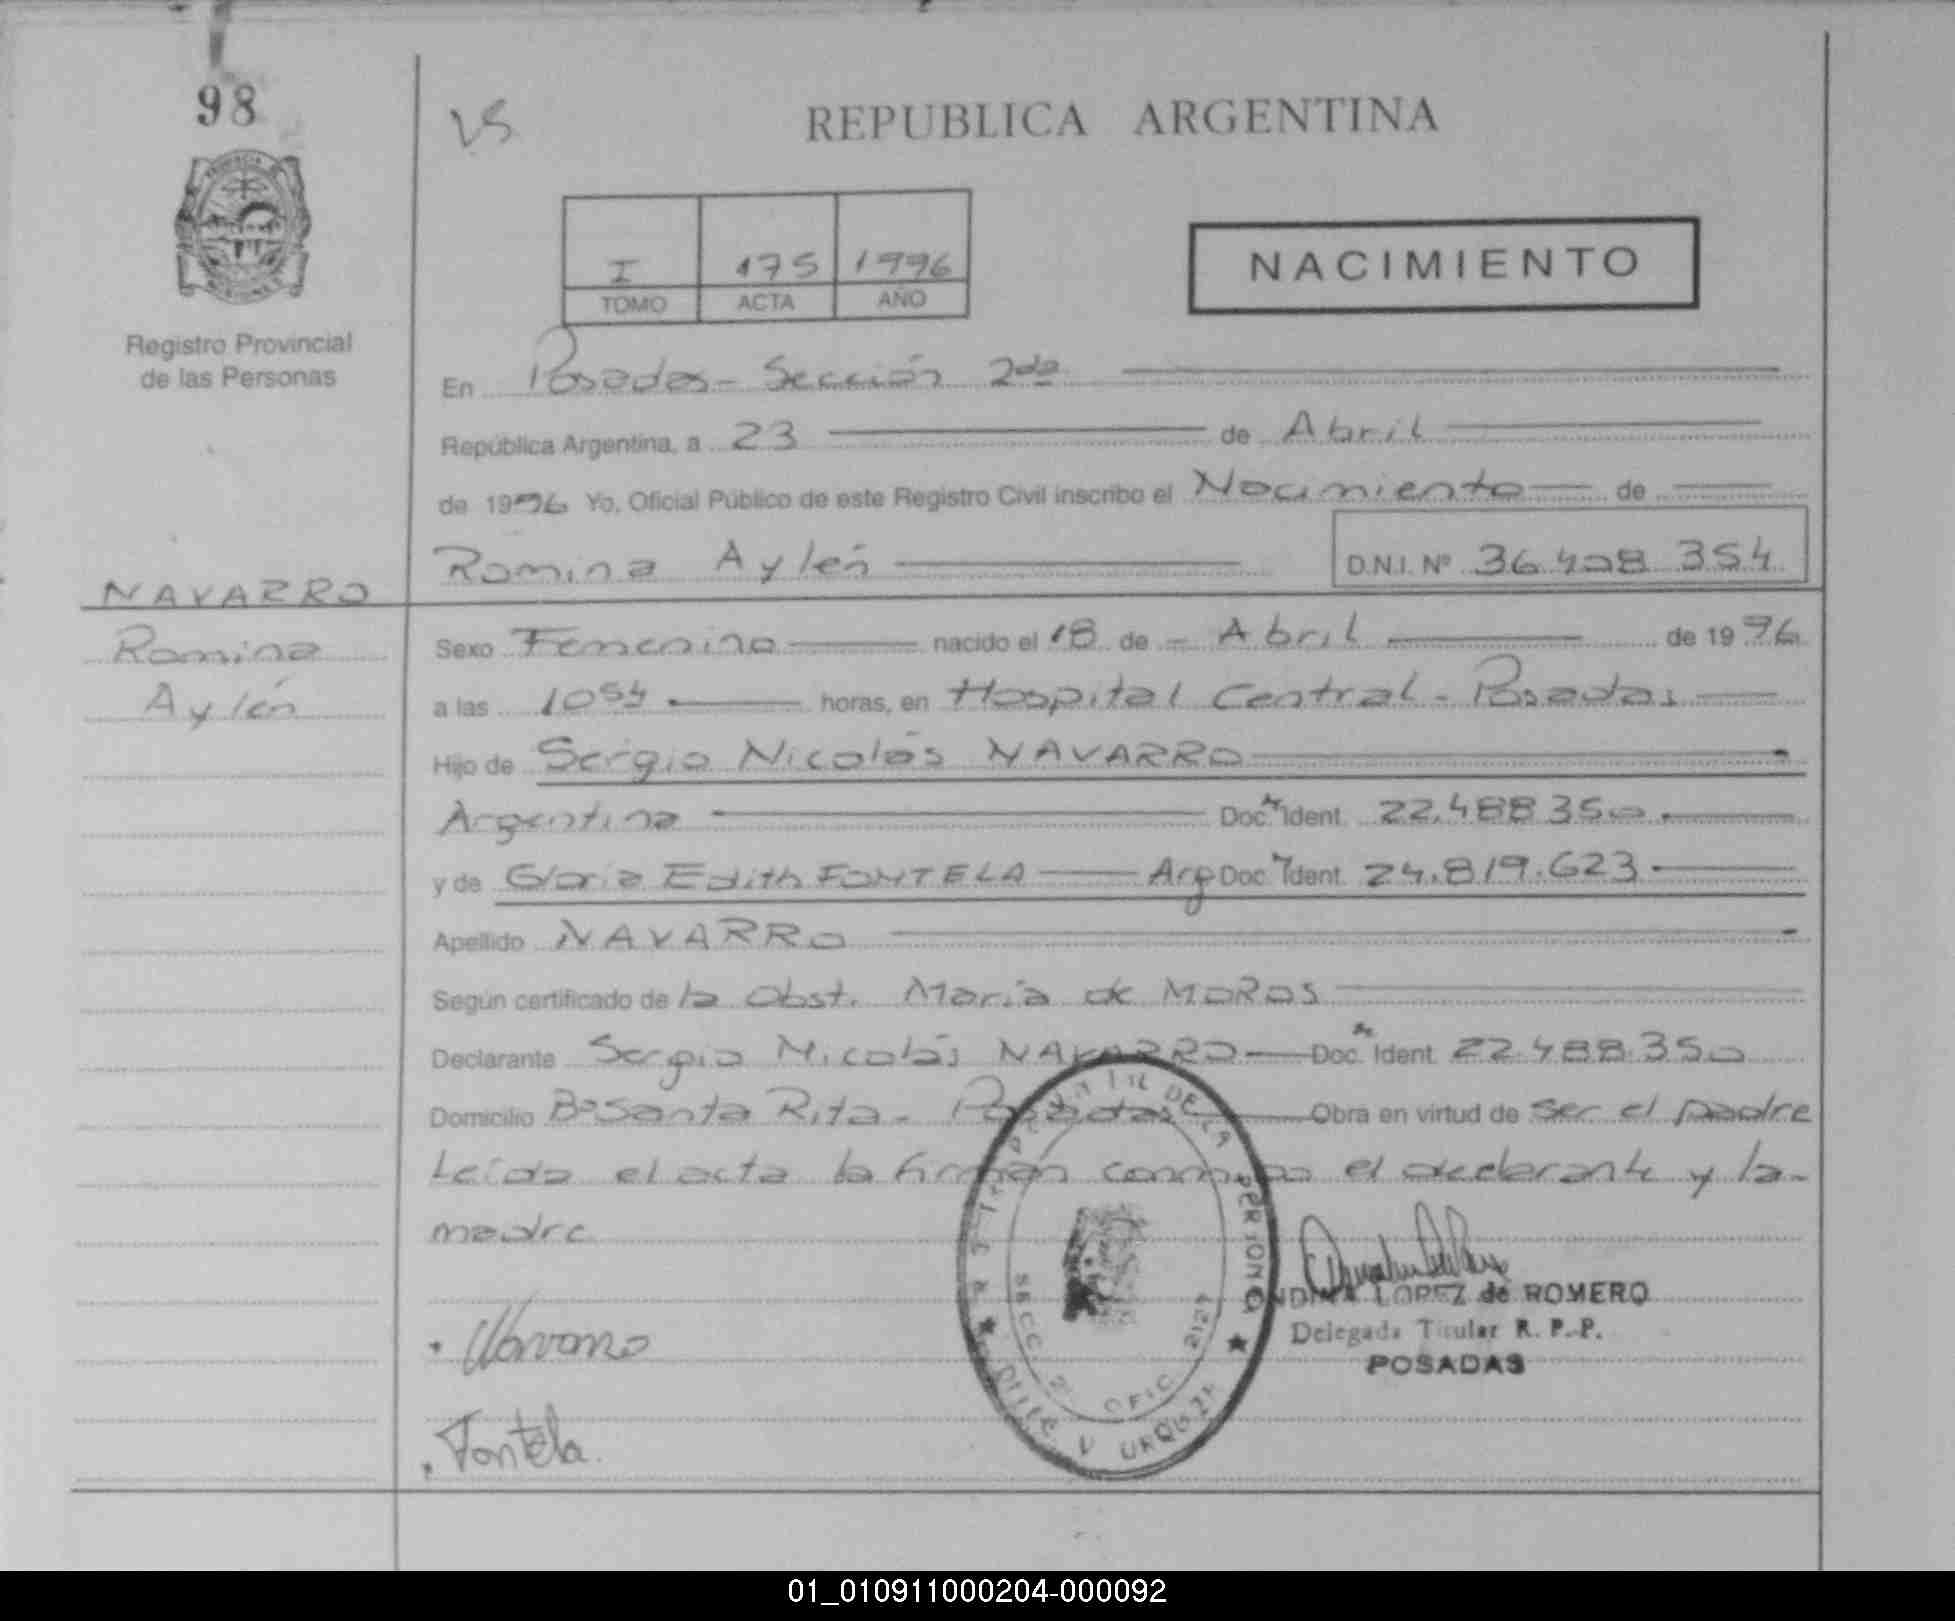 98
VS
REPUBLICA ARGENTINA
I 175 1996
TOMO ACTA AÑO
NACIMIENTO
Registro Provincial
de las Personas
En Posadas - Sección 2da
República Argentina, a 23 de Abril
de 1996 Yo, Oficial Público de este Registro Civil inscribo el Nacimiento de
Romina Aylén D.N.I. Nº 36.408.354
NAVARRO
Romina
Aylén
Sexo Femenino nacido el 18 de Abril de 1996
a las 10 54 horas, en Hospital Central - Posadas
Hijo de Sergio Nicolás NAVARRO
Argentina Doc. Ident. 22.488.350
y de Gloria Edith FONTELA Arg Doc. Ident. 24.819.623
Apellido NAVARRO
Según certificado de la Obst. María de MOROS
Declarante Sergio Nicolás NAVARRO Doc. Ident. 22.488.350
Domicilio Bº Santa Rita - Posadas Obra en virtud de ser el padre
Leída el acta la firman conmigo el declarante y la
madre
Navarro
Fontela
SECC 2 OFIC 2127
URQUIZA
ONDINA LOPEZ de ROMERO
Delegada Titular R. P. P.
POSADAS
01_010911000204-000092